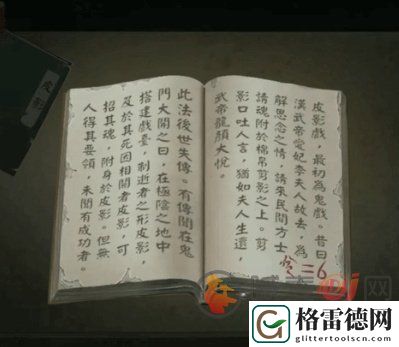 皮影戲，最初為鬼戲。昔日
漢武帝愛妃李夫人故去，為
解思念之情，請來民間方士
請魂附於棉帛剪影之上。剪
影口吐人言，猶如夫人生還，
武帝龍顏大悅。
三6
此法後世失傳。有傳聞在鬼
門大開之日，在極陰之地中
搭建戲臺，制逝者之形皮影，
及於其死因相關者皮影，可
招其魂，附身於皮影。但無
人得其要領，未聞有成功者。
皮影
网
格雷德网
www.glittertoolscn.com